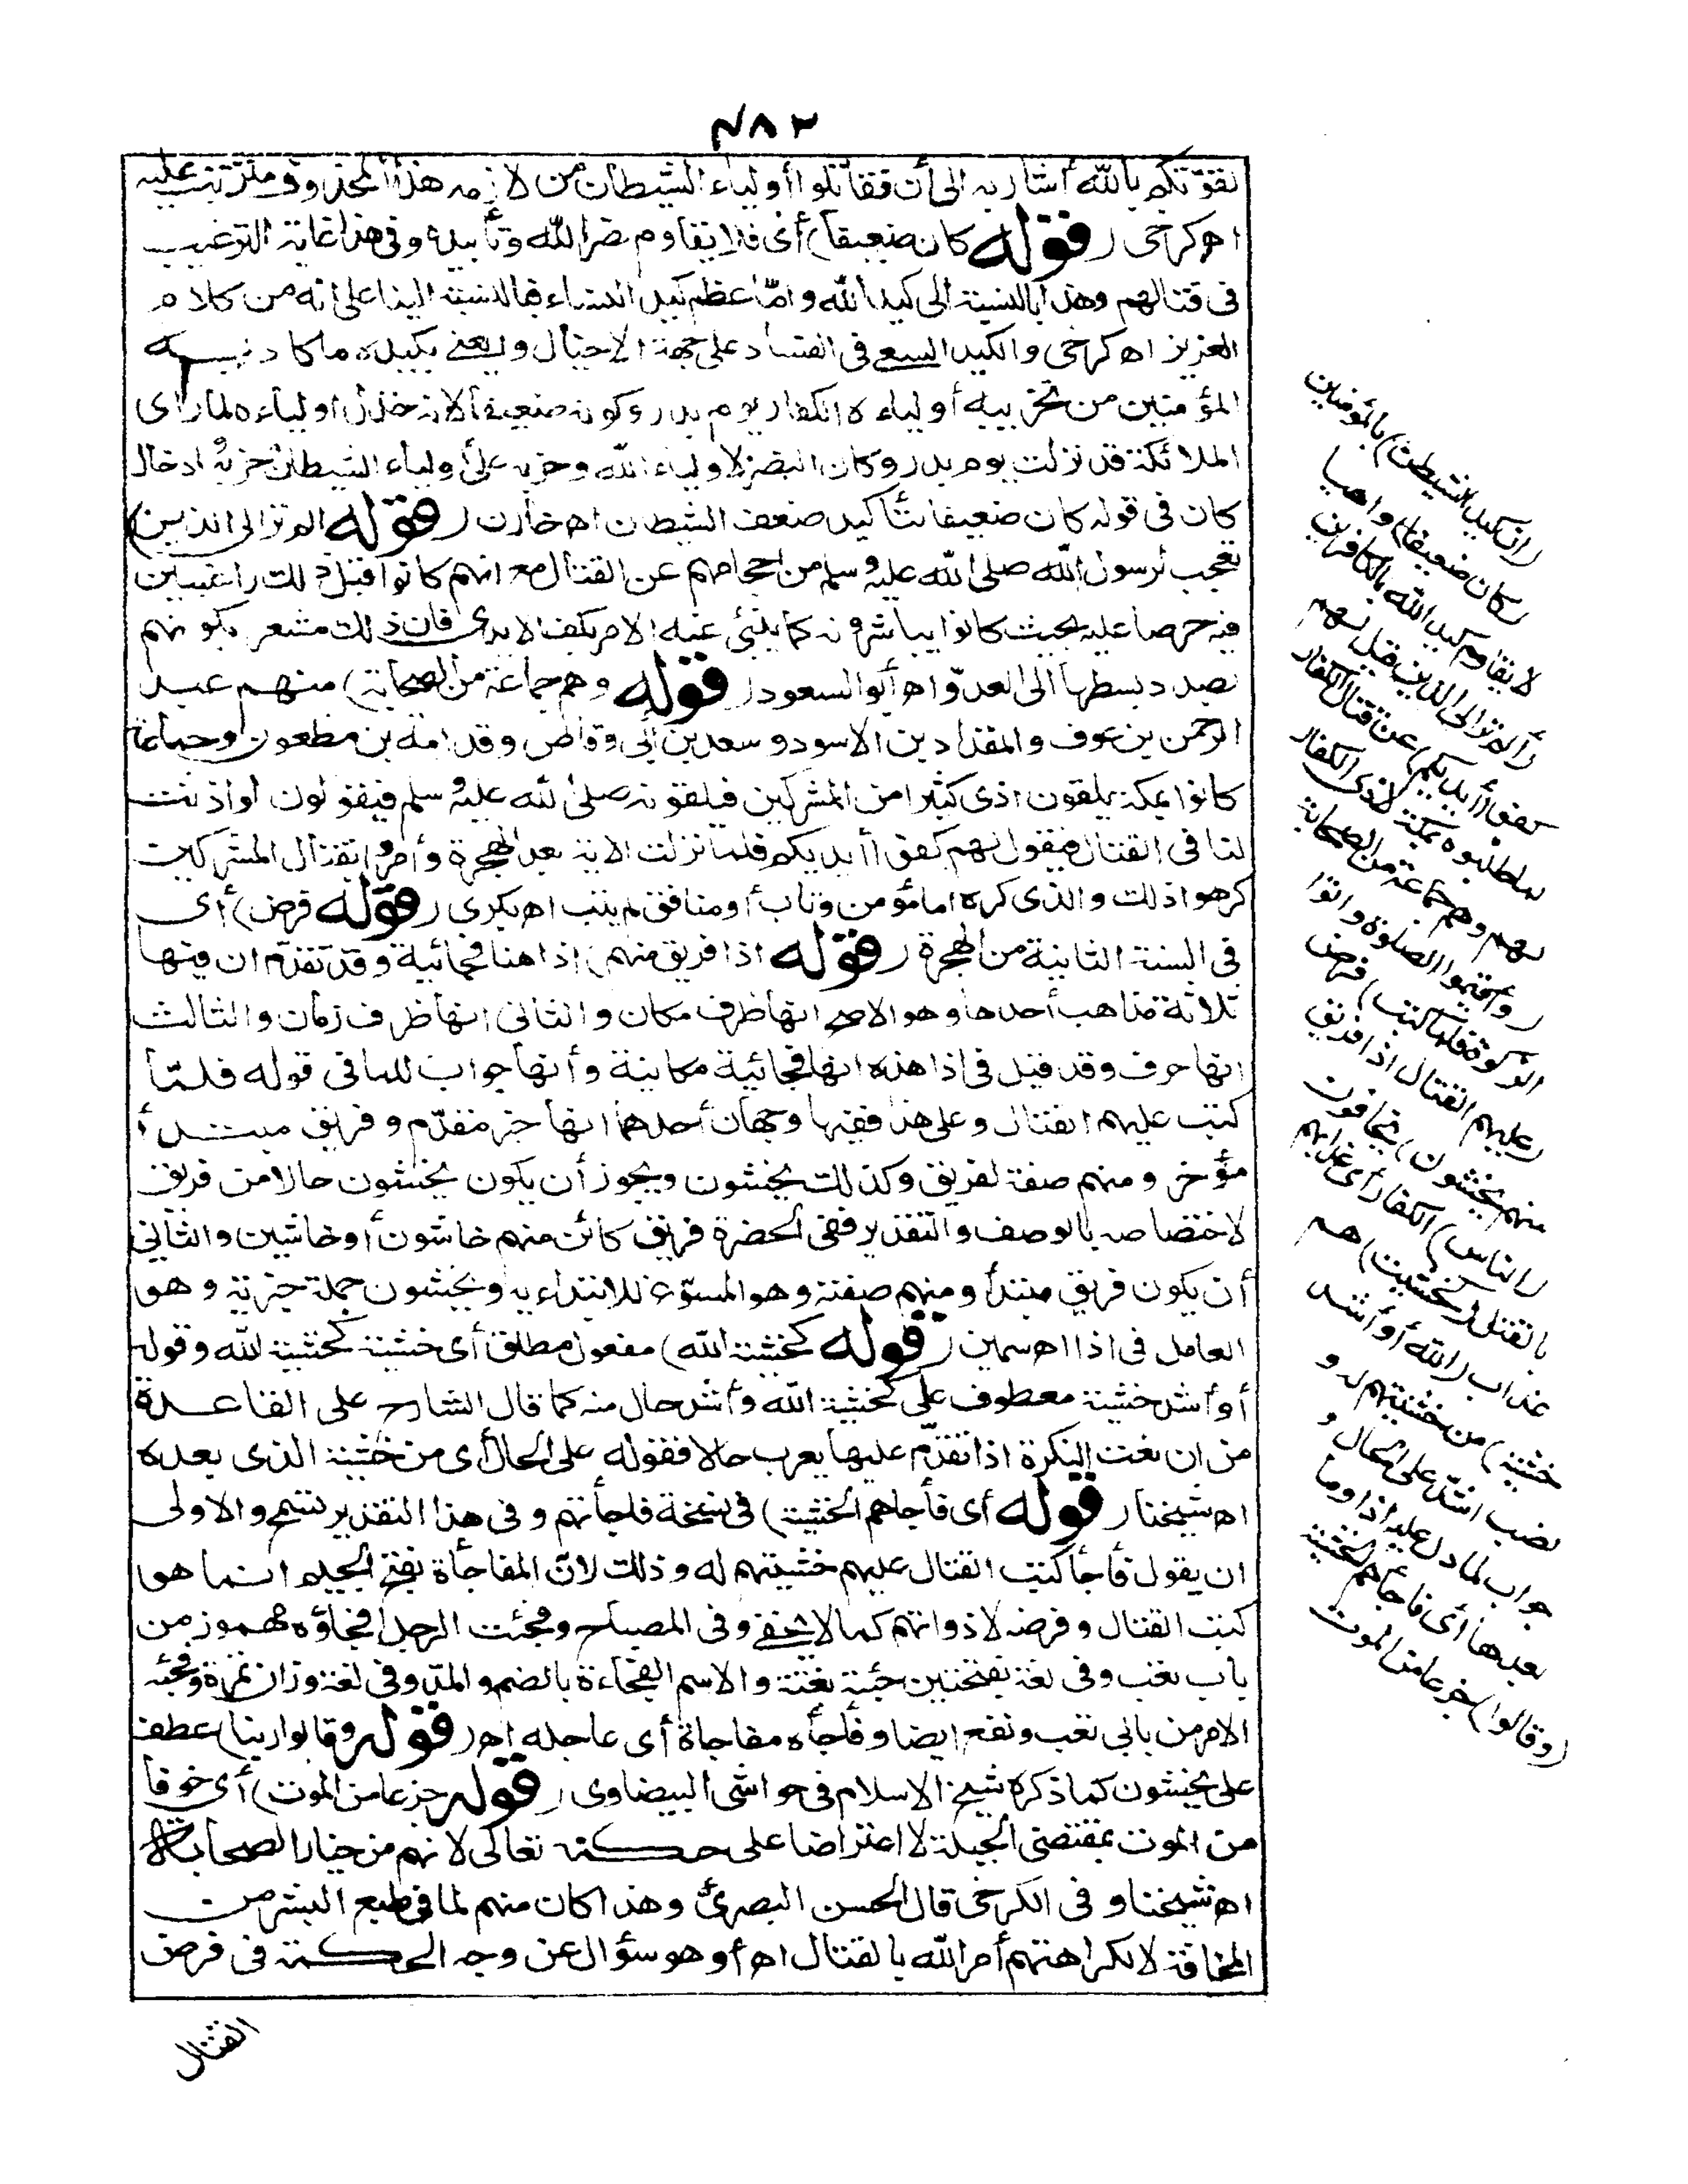 ٤٨٢
لقوّتكم بالله أشار به الى أن فقاتلوا أولياء الشيطان من لازمه هذا المحذوف مترتب عليه
اه كرخى (قوله كان ضعيفا) أى فلا يقاوم نصر الله وتأييده وفى هذا غاية الترغيب
فى قتالهم وهذا بالنسبة الى كيد الله وامّا عظم كيد النساء فبالنسبة الينا على انه من كلام
العزيز اه كرخى والكيد السعى فى الفساد على جهة الاحتيال ويعنى بكيده ما كاد به
المؤمنين من تخزيبه أولياءه الكفار يوم بدر وكونه ضعيفا لانه خذل أولياءه لما رأى
الملائكة قد نزلت يوم بدر وكان النصر لاولياء الله وحزبه على أولياء الشيطان وحزبه وادخال
كان فى قوله كان ضعيفا لتأكيد ضعف الشيطان اه خازن (قوله الم تر الى الذين)
تعجيب لرسول الله صلى الله عليه وسلم من احجامهم عن القتال مع انهم كانوا قبل ذلك راغبين
فيه حرصا عليه بحيث كانوا يباشرونه كما ينبئ عنه الامر بكف الايدى فان ذلك مشعر بكونهم
بصدد بسطها الى العدوّ اه أبو السعود (قوله وهم جماعة من الصحابة) منهم عبد
الرحمن بن عوف والمقداد بن الاسود وسعد بن أبى وقاص وقدامة بن مظعون وجماعة
كانوا بمكة يلقون اذى كثيرا من المشركين فيلقونه صلى الله عليه وسلم فيقولون لو اذنت
لنا فى القتال فيقول لهم كفوا أيديكم فلما نزلت الاية بعد الهجرة وأمروا بقتال المشركين
كرهوا ذلك والذى كره اما مؤمن وتاب أو منافق لم يتب اه بكرى (قوله فرض) أى
فى السنة الثانية من الهجرة (قوله اذا فريق منهم) اذا هنا فجائية وقد تقدّم ان فيها
ثلاثة مذاهب أحدها وهو الاصح انها ظرف مكان والثانى انها ظرف زمان والثالث
انها حرف وقد قيل فى اذا هذه انها فجائية مكانية وأنها جواب للما فى قوله فلمّا
كتب عليهم القتال وعلى هذا ففيها وجهان أحدهما انها خبر مقدّم وفريق مبتدأ
مؤخر ومنهم صفة لفريق وكذلك يخشون ويجوز أن يكون يخشون حالا من فريق
لاختصاصه بالوصف والتقدير ففى الحضرة فريق كائن منهم خاشون أو خاشين والثانى
أن يكون فريق مبتدأ ومنهم صفته وهو المسوّغ للابتداء به ويخشون جملة خبرية وهو
العامل فى اذا اه سمين (قوله كخشية الله) مفعول مطلق أى خشية كخشية الله وقوله
أو أشد خشية معطوف على كخشية الله وأشد حال منه كما قال الشارح على القاعدة
من ان نعت النكرة اذا تقدّم عليها يعرب حالا فقوله على الحال أى من خشية الذى بعده
اه شيخنا (قوله أى فأجاهم الخشية) فى نسخة فاجأتهم وفى هذا التقدير تسمح والاولى
ان يقول فأجأ كتب القتال عليهم خشيتهم له وذلك لانّ المفاجأة بفتح الجيم انما هو
كتب القتال وفرضه لاذواتهم كما لا يخفى وفى المصباح وفجئت الرجل افجاؤه مهموز من
باب تعب وفى لغة بفتحتين جئته بغتة والاسم الفجاءة بالضم والمدّ وفى لغة وزان تمرة وفجئه
الامر من بابى تعب ونفع ايضا وفاجأه مفاجاة أى عاجله اه (قوله وقالوا ربنا) عطف
على يخشون كما ذكره شيخ الاسلام فى حواشى البيضاوى (قوله جزعا من الموت) أى خوفا
من الموت بمقتضى الجبلة لا اعتراضا على حكمته تعالى لانهم من خيار الصحابة
اه شيخنا وفى الكرخى قال الحسن البصرى وهذا كان منهم لما فى طبع البشر من
المخافة لا لكراهتهم أمر الله بالقتال اه أو هو سؤال عن وجه الحكمة فى فرض
القتال
(ان كيد الشيطن) بالمؤمنين
(كان ضعيفا) واهيا
لا يقاوم كيد الله بالكافرين
(ألم تر الى الذين قيل لهم
كفوا أيديكم) عن قتال الكفار
لما طلبوه بمكة لاذى الكفار
لهم وهم جماعة من الصحابة
(وأقيموا الصلوة واتوا
الزكوة فلما كتب) فرض
(عليهم القتال اذا فريق
منهم يخشون) يخافون
(الناس) الكفار أى عذابهم
بالقتل (كخشية) هم
عذاب (الله أو أشد
خشية) من خشيتهم له و
نصب اشدّ على الحال و
جواب لما دل عليه اذا وما
بعدها أى فاجأهم الخشية
(وقالوا) جزعا من الموت